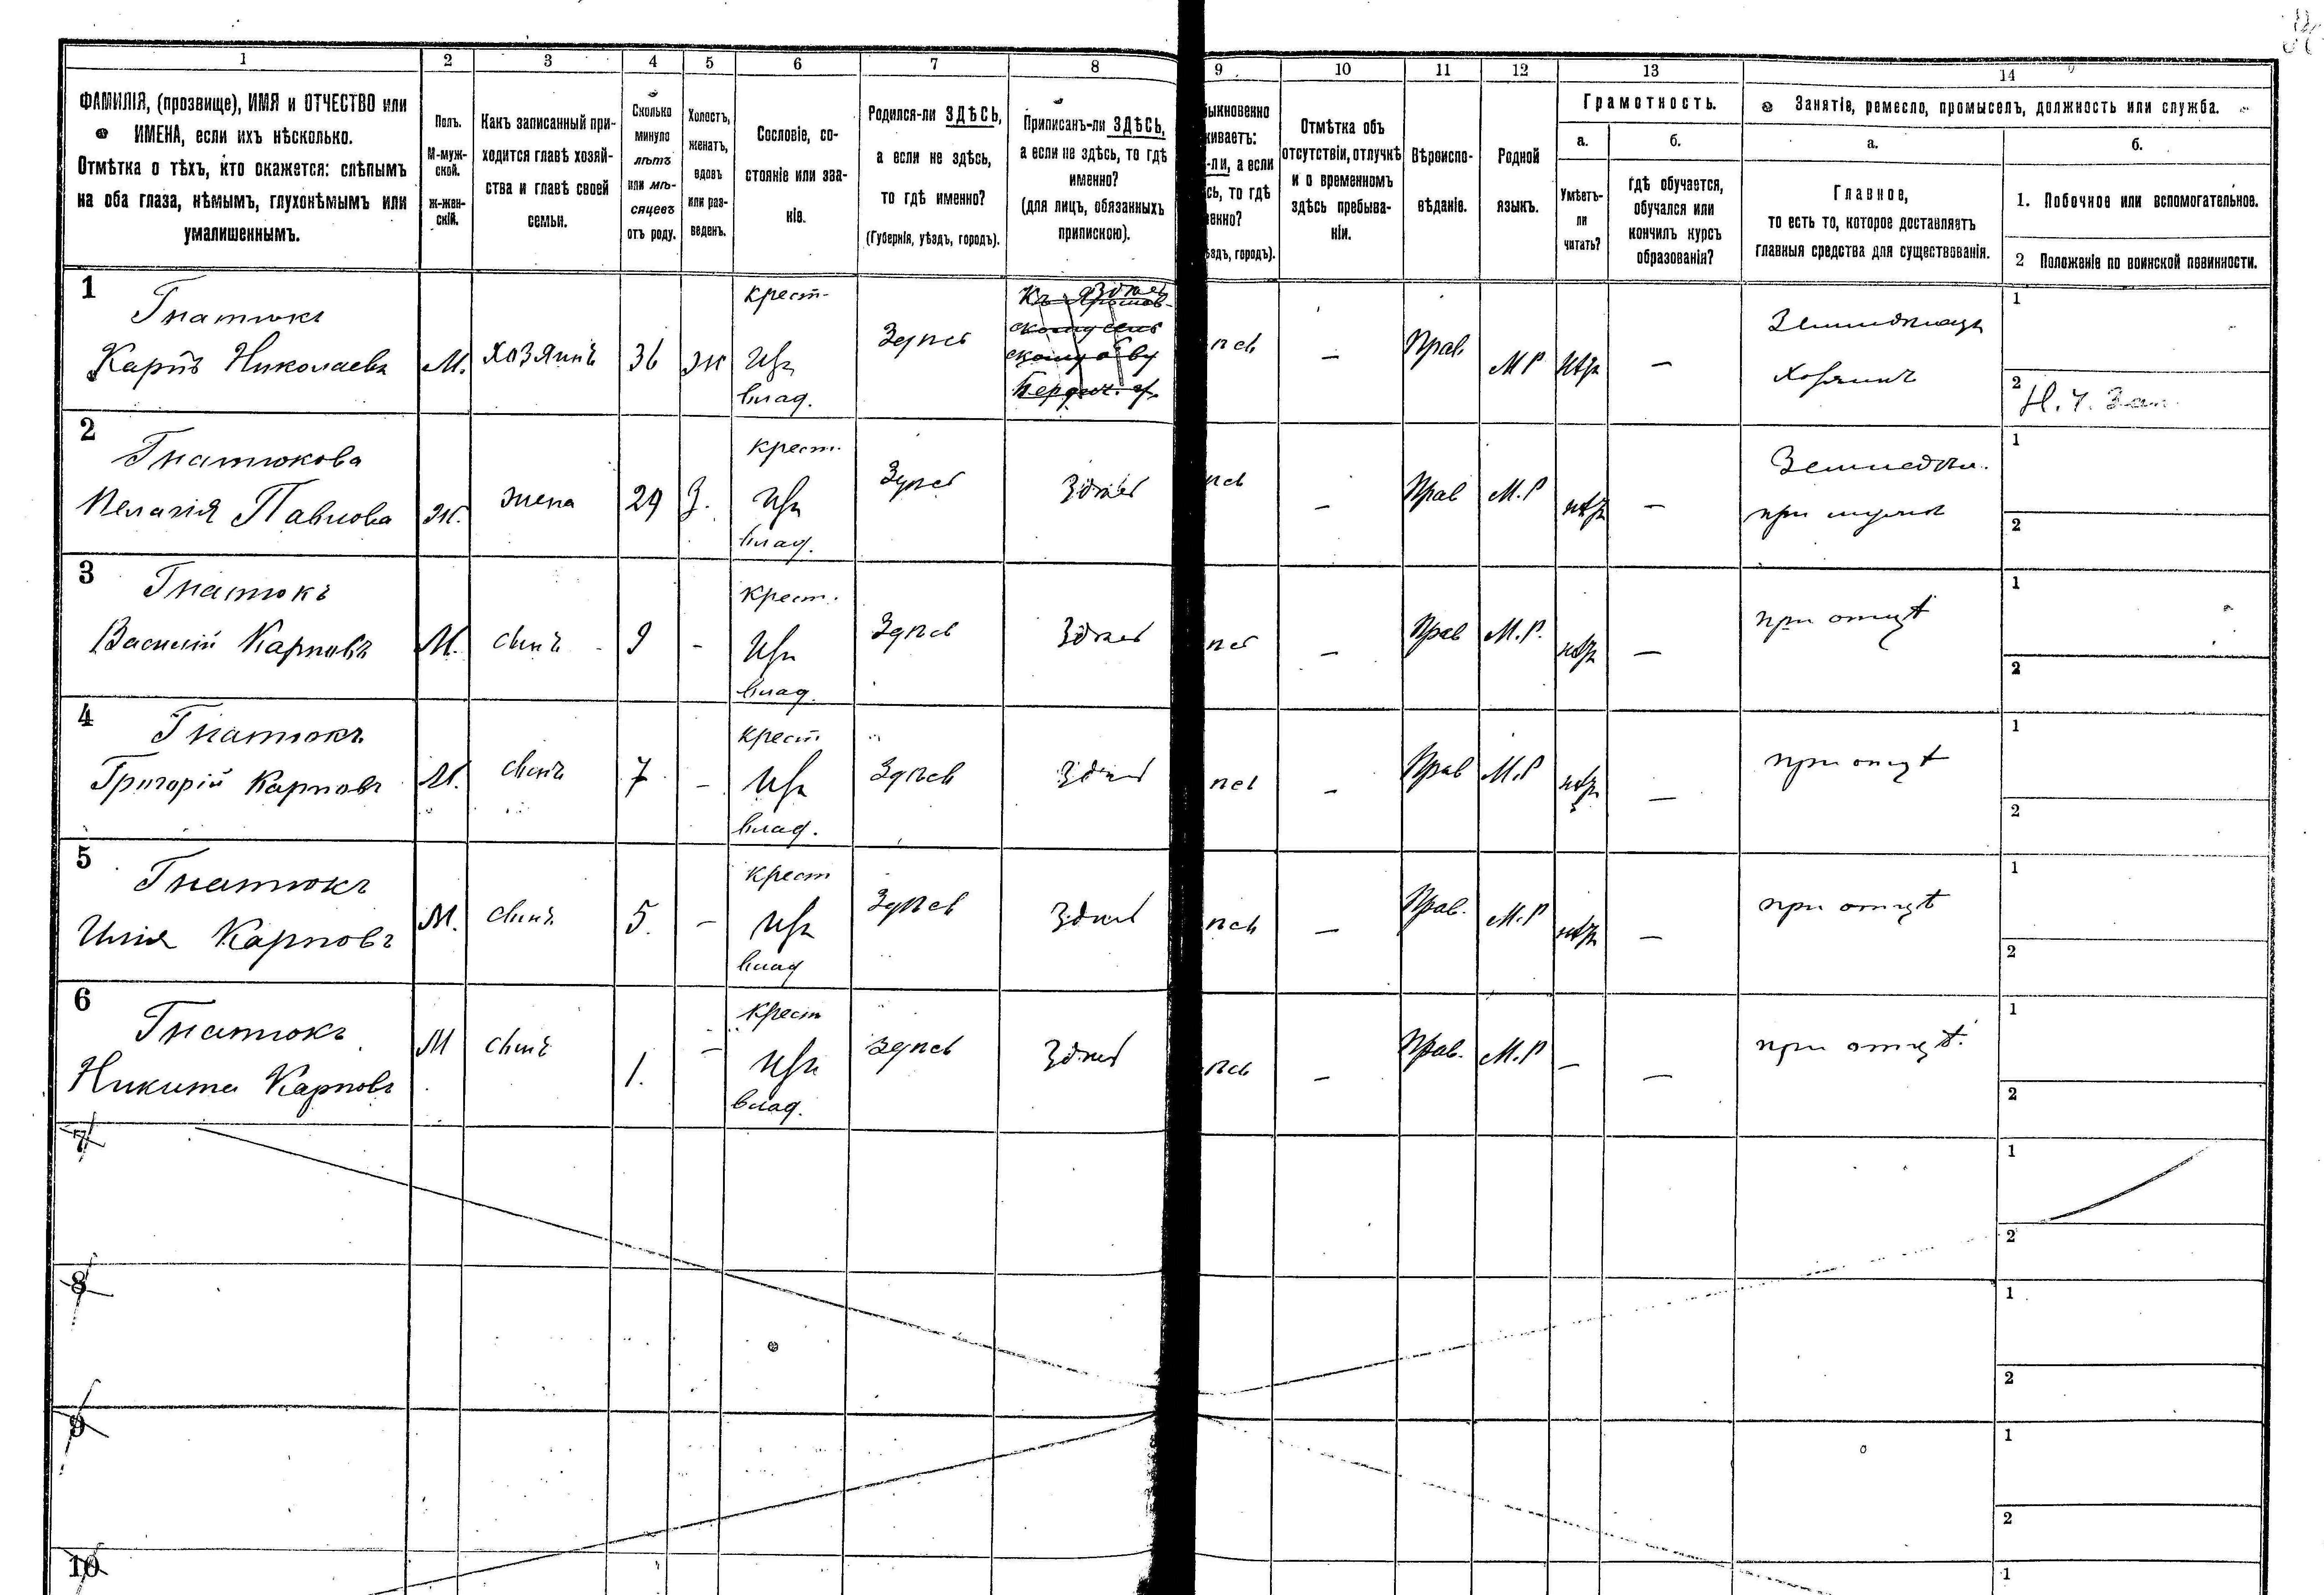 1 2 3 4 5 6 7 8 9 10 11 12 13 14
ФАМИЛІЯ, (прозвище), ИМЯ и ОТЧЕСТВО или
ИМЕНА, если ихъ нѣсколько.
Отмѣтка о тѣхъ, кто окажется: слѣпымъ
на оба глаза, нѣмымъ, глухонѣмымъ или
умалишеннымъ.
Полъ.
М-муж-
ской.
ж-жен-
скій.
Какъ записанный при-
ходится главѣ хозяй-
ства и главѣ своей
семьи.
Сколько
минуло
лѣтъ
или мѣ-
сяцевъ
отъ роду.
Холостъ,
женатъ,
вдовъ
или раз-
веденъ.
Сословіе, со-
стояніе или зва-
ніе.
Родился-ли ЗДѢСЬ,
а если не здѣсь,
то гдѣ именно?
(Губернія, уѣздъ, городъ).
Приписанъ-ли ЗДѢСЬ,
а если не здѣсь, то гдѣ
именно?
(для лицъ, обязанныхъ
припискою).
ыкновенно
живаетъ:
-ли, а если
сь, то гдѣ
енно?
ѣздъ, городъ).
Отмѣтка объ
отсутствіи, отлучкѣ
и о временномъ
здѣсь пребыва-
ніи.
Вѣроиспо-
вѣданіе.
Родной
языкъ.
Грамотность.
а.
Умѣетъ-
ли
читать?
б.
гдѣ обучается,
обучался или
кончилъ курсъ
образованія?
Занятіе, ремесло, промыселъ, должность или служба.
а.
Главное,
то есть то, которое доставляетъ
главныя средства для существованія.
б.
1. Побочное или вспомогательное.
2 Положеніе по воинской повинности.
1
Гнатюкъ
Карпъ Николаевъ
М.
хозяинъ
36
ж
крест-
изъ
влад.
Здѣсь
Здѣсь
ѣсь
—
Прав.
М Р
нѣтъ
—
Земледѣлецъ
Хозяинъ
1
2
2
Гнатюкова
Пелагія Павлова
ж.
жена
29
З.
крест.
изъ
влад.
Здѣсь
Здѣсь
ѣсь
—
Прав
М.Р
нѣтъ
—
Земледѣл.
при мужѣ
1
2
3
Гнатюкъ
Василій Карповъ
М.
сынъ
9
-
крест.
изъ
влад.
Здѣсь
Здѣсь
ѣсь
—
Прав
М.Р.
нѣтъ
—
при отцѣ
1
2
4
Гнатюкъ
Григорій Карповъ
М.
сынъ
7
-
крест
изъ
влад.
Здѣсь
Здѣсь
ѣсь
—
Прав
М.Р
нѣтъ
—
при отцѣ
1
2
5
Гнатюкъ
Илія Карповъ
М.
сынъ
5.
-
крест
изъ
влад
Здѣсь
Здѣсь
ѣсь
—
Прав.
М.Р
нѣтъ
—
при отцѣ
1
2
6
Гнатюкъ
Никита Карповъ
М
сынъ
1.
-
крест
изъ
влад.
здѣсь
Здѣсь
ѣсь
—
Прав.
М.Р
—
—
при отцѣ.
1
2
7
1
2
8
1
2
9
1
2
10
1